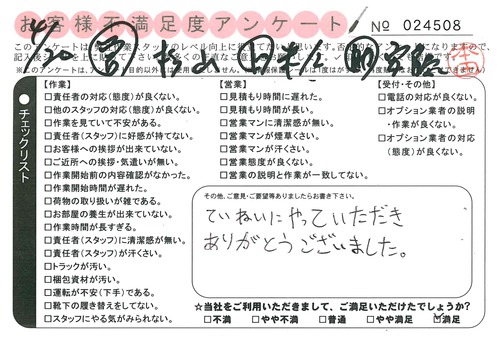 お客様不満足度アンケート
№ 024508
4/30
チェックリスト
【作業】
□責任者の対応(態度)が良くない。
□他のスタッフの対応(態度)が良くない。
□作業を見ていて不安がある。
□責任者(スタッフ)に好感が持てない。
□お客様への挨拶が出来ていない。
□ご近所への挨拶・気遣いが無い。
□作業開始前の内容確認がなかった。
□作業開始時間が遅れた。
□荷物の取り扱いが雑である。
□お部屋の養生が出来ていない。
□作業時間が長すぎる。
□責任者(スタッフ)に清潔感が無い。
□責任者(スタッフ)が汗くさい。
□トラックが汚い。
□梱包資材が汚い。
□運転が不安(下手)である。
□靴下の履き替えをしてない。
□スタッフにやる気がみられない。
【営業】
□見積もり時間に遅れた。
□見積もり時間が長い。
□営業マンに清潔感が無い。
□営業マンが煙草くさい。
□営業マンが汗くさい。
□営業態度が良くない。
□営業の説明と作業が一致してない。
【受付・その他】
□電話の対応が良くない。
□オプション業者の説明・作業が良くない。
□オプション業者の対応(態度)が良くない。
その他、ご意見・ご要望等ありましたらお書き下さい。
ていねいにやっていただき
ありがとうございました。
☆当社をご利用いただきまして、ご満足いただけたでしょうか?
□不満 □やや不満 □普通 □やや満足 ☑満足